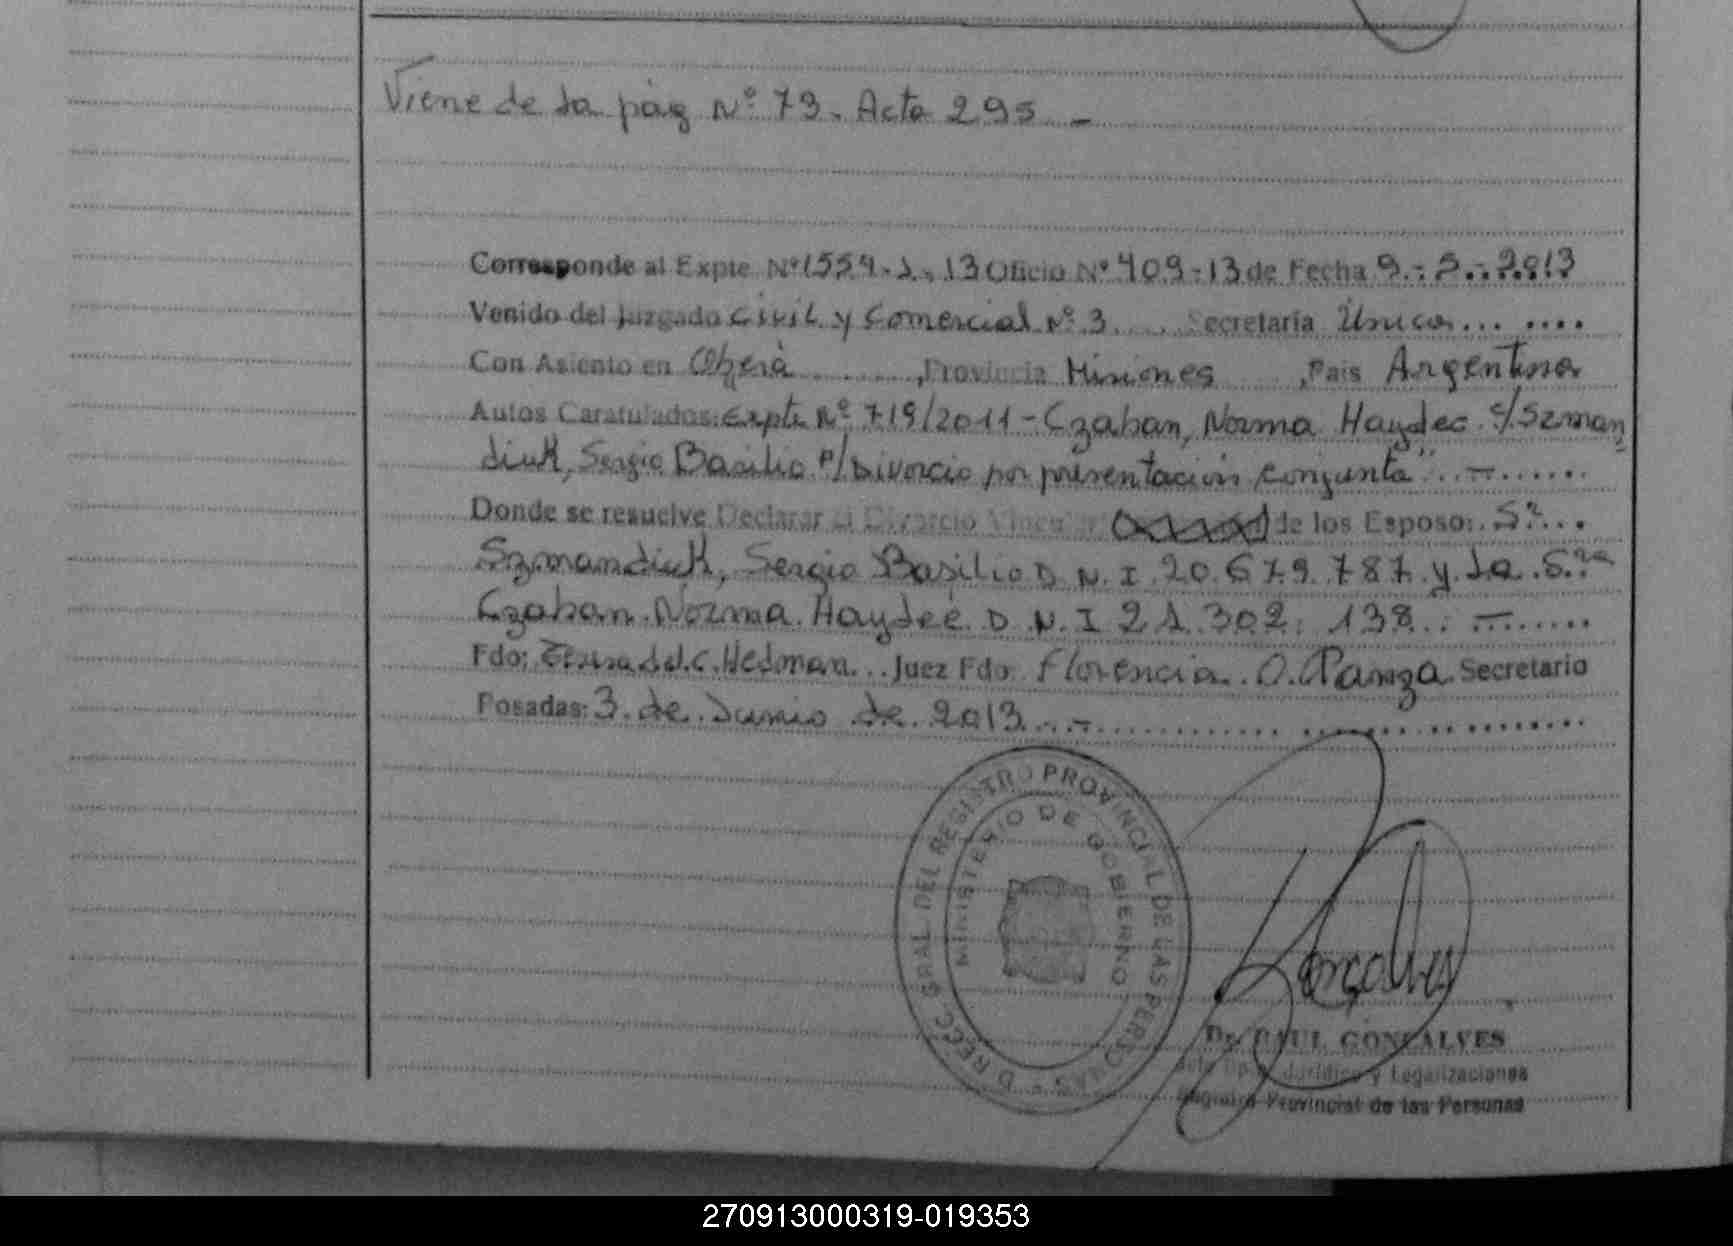 Viene de la pág Nº 73. Acta 295 -
Corresponde al Expte. Nº 1554-J-13 Oficio Nº 409-13 de Fecha 9-5-2013
Venido del Juzgado Civil y Comercial Nº 3 Secretaría Única
Con Asiento en Oberá, Provincia Misiones, País Argentina
Autos Caratulados: Expte Nº 719/2011 - Czaban, Norma Haydee c/ Szman
diuk, Sergio Basilio P/ Divorcio por presentación conjunta"
Donde se resuelve Declarar el Divorcio Vincular de los Esposo: Sr.
Szmandiuk, Sergio Basilio D.N.I 20.679.787 y la Sra
Czaban Norma Haydeé D.N.I 21.302.138
Fdo: Teresa del C. Hedman Juez Fdo: Florencia O. Panza Secretario
Posadas: 3 de Junio de 2013
DRECC. GRAL DEL REGISTRO PROVINCIAL DE LAS PERSONAS
MINISTERIO DE GOBIERNO
Dr. RAUL GONCALVES
Dpto. Jurídico y Legalizaciones
Registro Provincial de las Personas
270913000319-019353